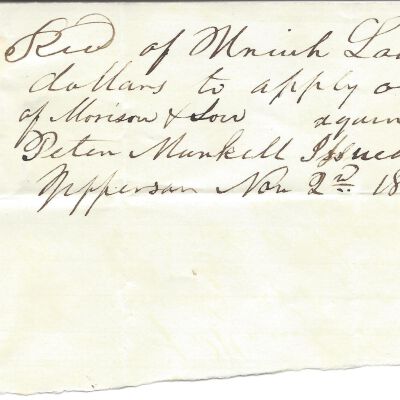 Recd of Mriah La
dollars to apply o
of Morison & Son again
Peter Munkell Issued
Jepperson Nov 2nd 18